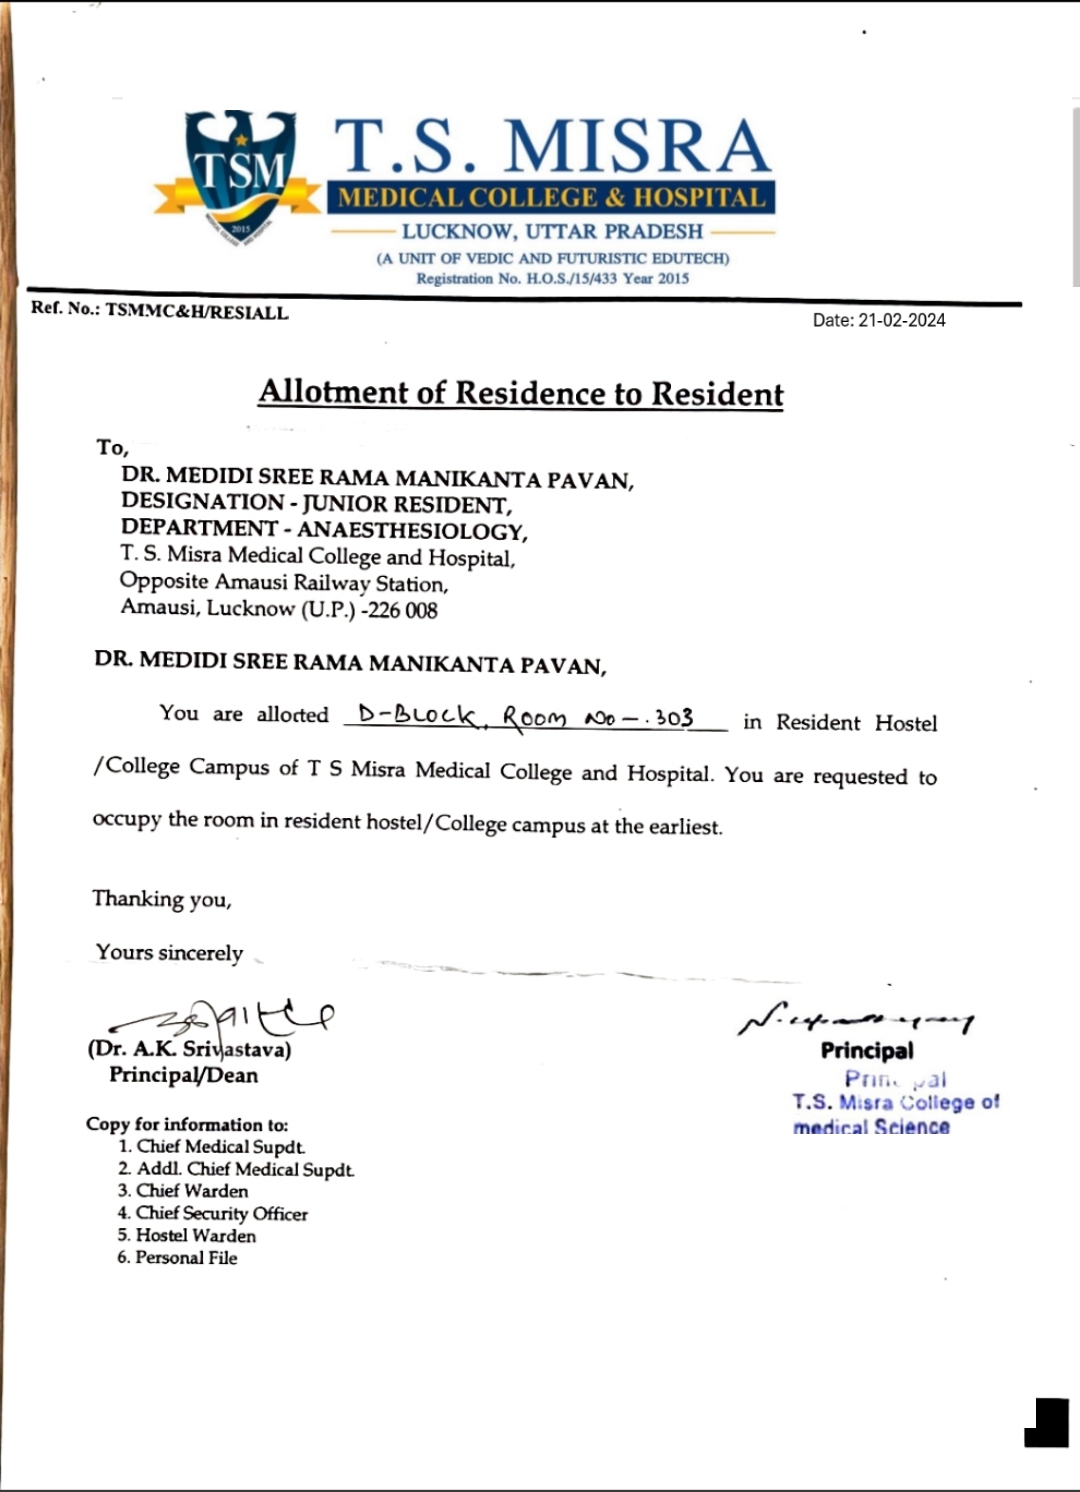 TSM
2015
T.S. MISRA
MEDICAL COLLEGE & HOSPITAL
LUCKNOW, UTTAR PRADESH
(A UNIT OF VEDIC AND FUTURISTIC EDUTECH)
Registration No. H.O.S./15/433 Year 2015
Ref. No.: TSMMC&H/RESIALL
Date: 21-02-2024
Allotment of Residence to Resident
To,
DR. MEDIDI SREE RAMA MANIKANTA PAVAN,
DESIGNATION - JUNIOR RESIDENT,
DEPARTMENT - ANAESTHESIOLOGY,
T. S. Misra Medical College and Hospital,
Opposite Amausi Railway Station,
Amausi, Lucknow (U.P.) -226 008
DR. MEDIDI SREE RAMA MANIKANTA PAVAN,
You are allotted D-BLOCK, ROOM No - .303 in Resident Hostel
/College Campus of T S Misra Medical College and Hospital. You are requested to
occupy the room in resident hostel/College campus at the earliest.
Thanking you,
Yours sincerely
(Dr. A.K. Srivastava)
Principal/Dean
Principal
Principal
T.S. Misra College of
medical Science
Copy for information to:
1. Chief Medical Supdt.
2. Addl. Chief Medical Supdt.
3. Chief Warden
4. Chief Security Officer
5. Hostel Warden
6. Personal File